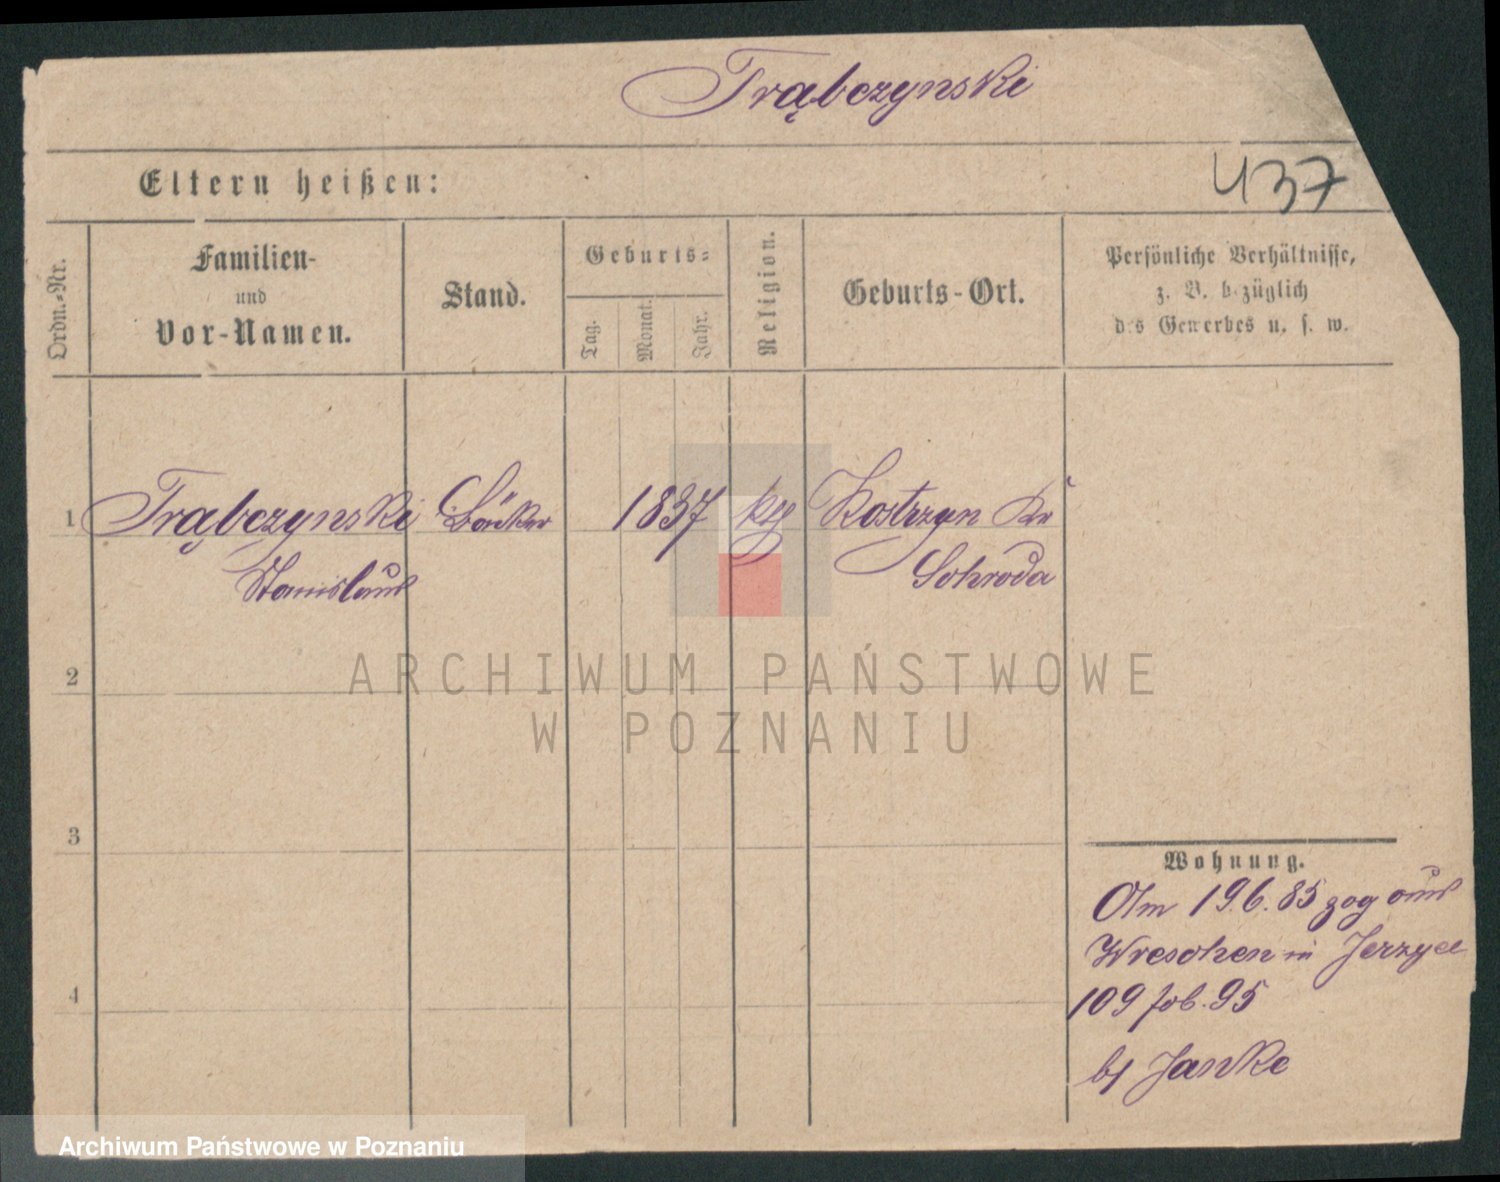 Trąbczynski
437
Eltern heißen:
Ordn.-Nr.
Familien-
und
Vor-Namen.
Stand.
Geburts-
Tag.
Monat.
Jahr.
Religion.
Geburts-Ort.
Persönliche Verhältnisse,
z. B. bezüglich
des Gewerbes u. s. w.
1 Trąbczynski Bäcker 1837 Kostrzyn Kr
Stanislaus Schroda
2
3
4
Wohnung.
Am 19.6.85 zog aus
Wreschen in Jerzyce
109 fol. 95
bei Janke
ARCHIWUM PAŃSTWOWE
W POZNANIU
Archiwum Państwowe w Poznaniu